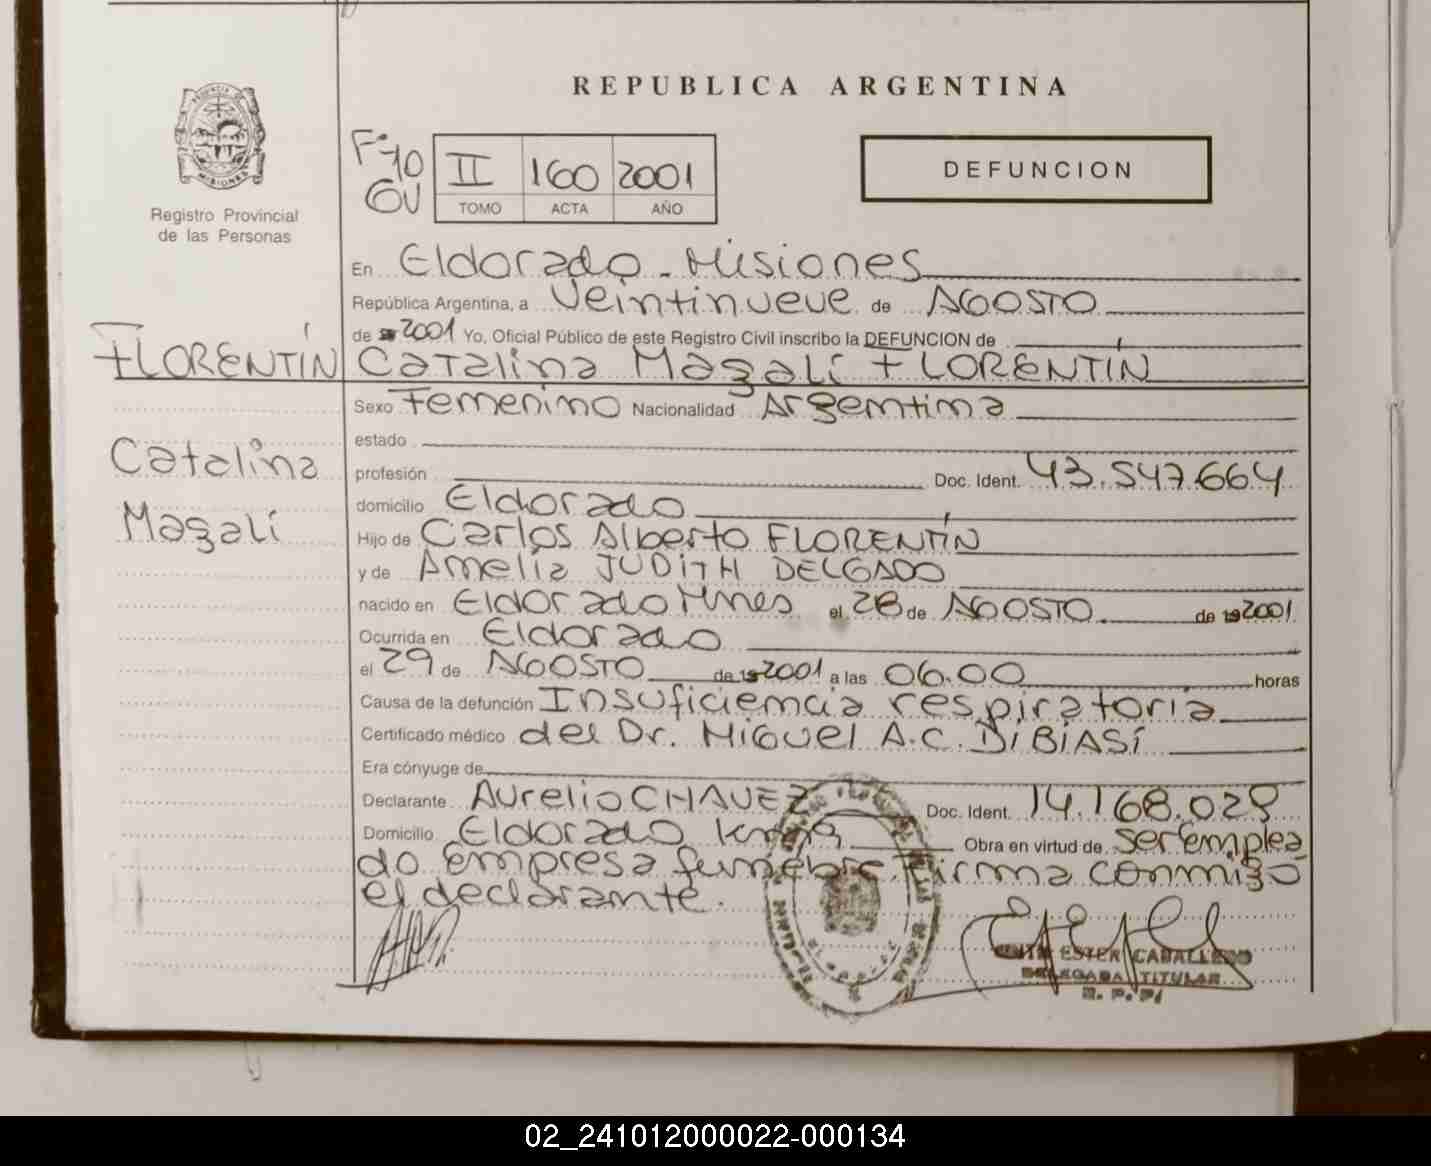 REPUBLICA ARGENTINA
F-70
II 160 2001
TOMO ACTA AÑO
DEFUNCION
Registro Provincial
de las Personas
En Eldorado - Misiones
República Argentina, a Veintinueve de AGOSTO
de 2001 Yo, Oficial Público de este Registro Civil inscribo la DEFUNCION de
FLORENTÍN Catalina Magalí FLORENTÍN
Sexo Femenino Nacionalidad Argentina
estado
Catalina
profesión Doc. Ident. 43.547.664
domicilio Eldorado
Magalí
Hijo de Carlos Alberto FLORENTÍN
y de Amelia JUDITH DELGADO
nacido en Eldorado Mnes el 28 de AGOSTO de 2001
Ocurrida en Eldorado
el 29 de AGOSTO de 2001 a las 06.00 horas
Causa de la defunción Insuficiencia respiratoria
Certificado médico del Dr. Miguel A.C. DIBIASÍ
Era cónyuge de
Declarante Aurelio CHAVEZ Doc. Ident. 14.168.029
Domicilio Eldorado Obra en virtud de ser emplea
do empresa funebre firma conmigo
el declarante.
ESTER CABALLERO
DELEGADA TITULAR
R. P. P.
02_241012000022-000134